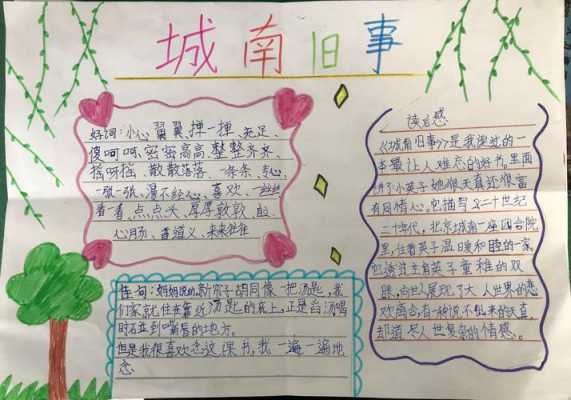 城南旧事
好词:小心翼翼、掸一掸、充足、
傻呵呵、密密高高、整整齐齐、
摇呀摇、散散落落、一条条、专心、
一张一张、漫不经心、喜欢、一丝丝
看一看、点点头、厚厚敦敦、
心形、 道义、来来往往
佳句:妈妈说的,新帘子胡同像一把汤匙,我
们家就住在靠近汤匙的底上,正是舀汤喝
时碰到嘴唇的地方。
但是我很喜欢念这一课书,我一遍一遍地
念
读后感
《城南旧事》是我读过的一
本最让人难忘的好书。里面
讲了小英子她很天真还很富
有同情心。它描写了二十世纪
二十年代,北京城南一座四合院
里,住着英子温暖和睦的一家,
它透过主角英子童稚的双
眼,向世人展现了大人世界的悲
欢离合有一种说不出来的天真,
却道尽人世复杂的情感。